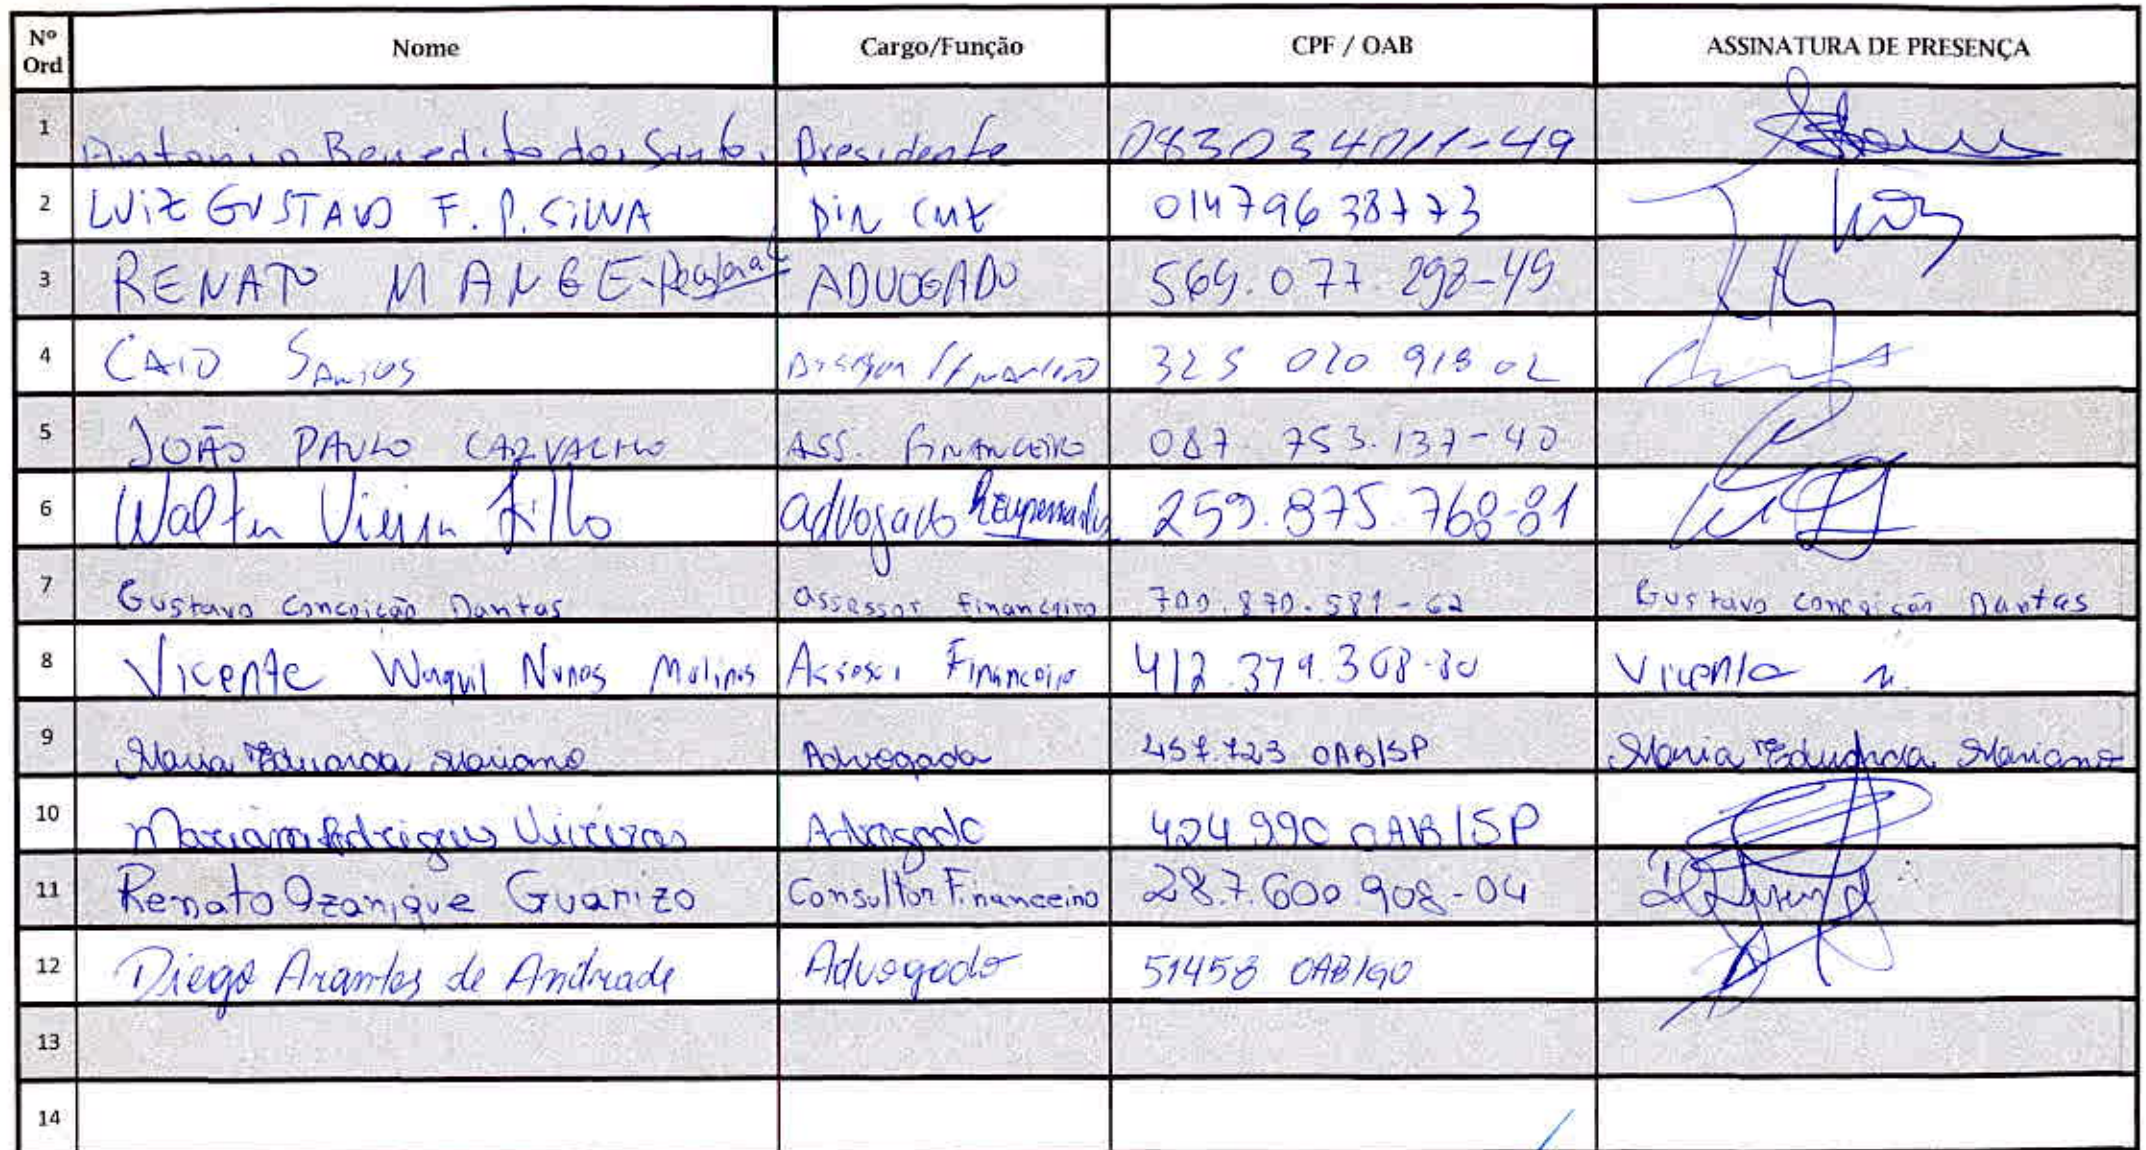 Nº Ord Nome Cargo/Função CPF / OAB ASSINATURA DE PRESENÇA
1 Antonio Benedito dos Santos Presidente 083034011-49
2 LUIZ GUSTAVO F. P. SILVA 01479638773
3 RENATO MANGE ADVOGADO 569.077.298-49
4 CAIO SANTOS 325 020 918 02
5 JOÃO PAULO CARVALHO ASS. FINANCEIRO 087.753.137-40
6 Walter Vieira Filho advogado 259.875.768-81
7 Gustavo Conceição Dantas assessor financeiro 700.870.581-62 Gustavo Conceição Dantas
8 Vicente Waquil Nunes Molinos Assessor Financeiro 412.379.308-80 Vicente
9 Maria Eduarda Mariano Advogada 457.723 OAB/SP Maria Eduarda Mariano
10 Mariana Rodrigues Advogada 424.990 OAB/SP
11 Renato Ozanique Guarizo Consultor Financeiro 287.600.908-04
12 Diego Arantes de Andrade Advogado 51458 OAB/GO
13
14